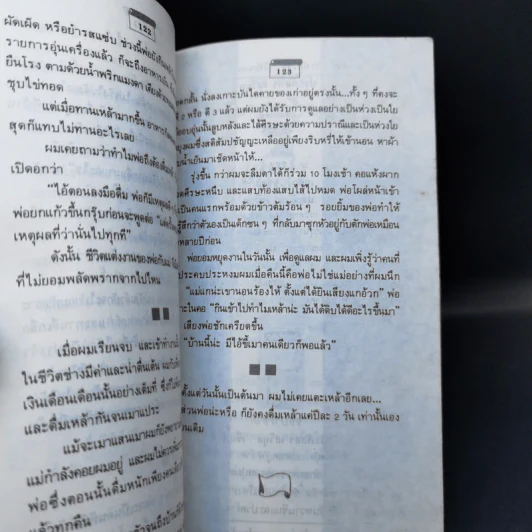 122
ผัดเผ็ด หรือยำรสแซ่บ ช่วงนี้พ่อ
รายการอุ่นเครื่องแล้ว ก็จะถึงอาหาร
ยืนโรง ตามด้วยน้ำพริกแมงดา
ชุบไข่ทอด
แต่เมื่อทานเหล้ามากขึ้น อาหาร
สุดก็แทบไม่ทานอะไรเลย
ผมเคยถามว่าทำไมพ่อถึงต้อง
เปิดอกว่า
"ไอ้ตอนลงมือดื่ม พ่อก็มีเหตุผล
พ่อยกแก้วขึ้นกรึ๊บก่อนจะพูดต่อ
เหตุผลที่ว่านั่นไปทุกที"
ดังนั้น ชีวิตแต่งงานของพ่อกับแม่
ที่ไม่ยอมพลัดพรากจากไปไหน
เมื่อผมเรียนจบ และเข้าทำงาน
ในชีวิตช่างมีค่าและน่าตื่นเต้น
เงินเดือนเดือนนั้นอย่างเต็มที่
และดื่มเหล้ากันจนเมาแประ
แม้จะเมาแสนเมาผมก็ยัง
แม่กำลังคอยผมอยู่ และผมไม่ควร
พ่อซึ่งตอนนั้นดื่มหนักเพียงคน
แล้วทุกคืน
123
นั่งลงเกาะบันไดคายของเก่าอยู่ตรงนั้น...ทั้ง ๆ ที่คงจะ
2 หรือ ตี 3 แล้ว แต่ผมยังได้รับการดูแลอย่างเป็นห่วงเป็นใย
อบอุ่นนั้นลูบหลังและไล้ศีรษะด้วยความปรานีและเป็นห่วงใย
ผมซึ่งสติสัมปชัญญะเหลืออยู่เพียงริบหรี่ให้เข้านอน หาผ้า
น้ำเย็นมาเช็ดหน้าให้...
รุ่งขึ้น กว่าผมจะลืมตาได้ก็ร่วม 10 โมงเช้า คอแห้งผาก
ศีรษะหนึบ และแสบท้องแสบไส้ไปหมด พ่อโผล่หน้าเข้า
เป็นคนแรกพร้อมด้วยข้าวต้มร้อน ๆ รอยยิ้มของพ่อทำให้
รู้สึกว่าตัวเองเป็นเด็กซน ๆ ที่กลับมาซุกหัวอยู่กับตักพ่อเหมือน
หลายปีก่อน
พ่อยอมหยุดงานในวันนั้น เพื่อดูแลผม และผมเพิ่งรู้ว่าคนที่
ประคบประหงมผมเมื่อคืนนี้คือพ่อไม่ใช่แม่อย่างที่ผมนึก
"แม่แกน่ะเขานอนร้องไห้ ตั้งแต่ได้ยินเสียงแกอ้วก" พ่อ
"กินเข้าไปทำไมเหล้าน่ะ มันได้ดิบได้ดีอะไรขึ้นมา"
เสียงพ่อชักเครียดขึ้น
"บ้านนี้น่ะ มีไอ้ขี้เมาคนเดียวก็พอแล้ว"
ตั้งแต่วันนั้นเป็นต้นมา ผมไม่เคยแตะเหล้าอีกเลย...
ส่วนพ่อน่ะหรือ ก็ยังคงดื่มเหล้าแค่ปีละ 2 วัน เท่านั้นเอง
เดิม